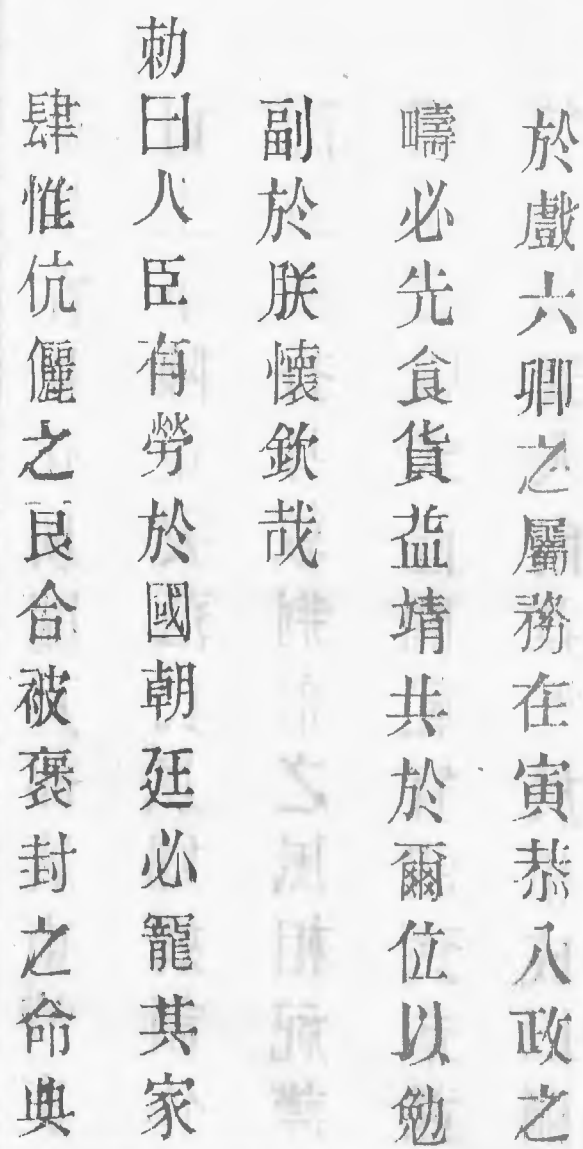 於戲六卿之屬務在寅恭八政之
疇必先食貨益靖共於爾位以勉
副於朕懷欽哉
勑曰人臣有勞於國朝廷必寵其家
肆惟伉儷之良合被褒封之命典